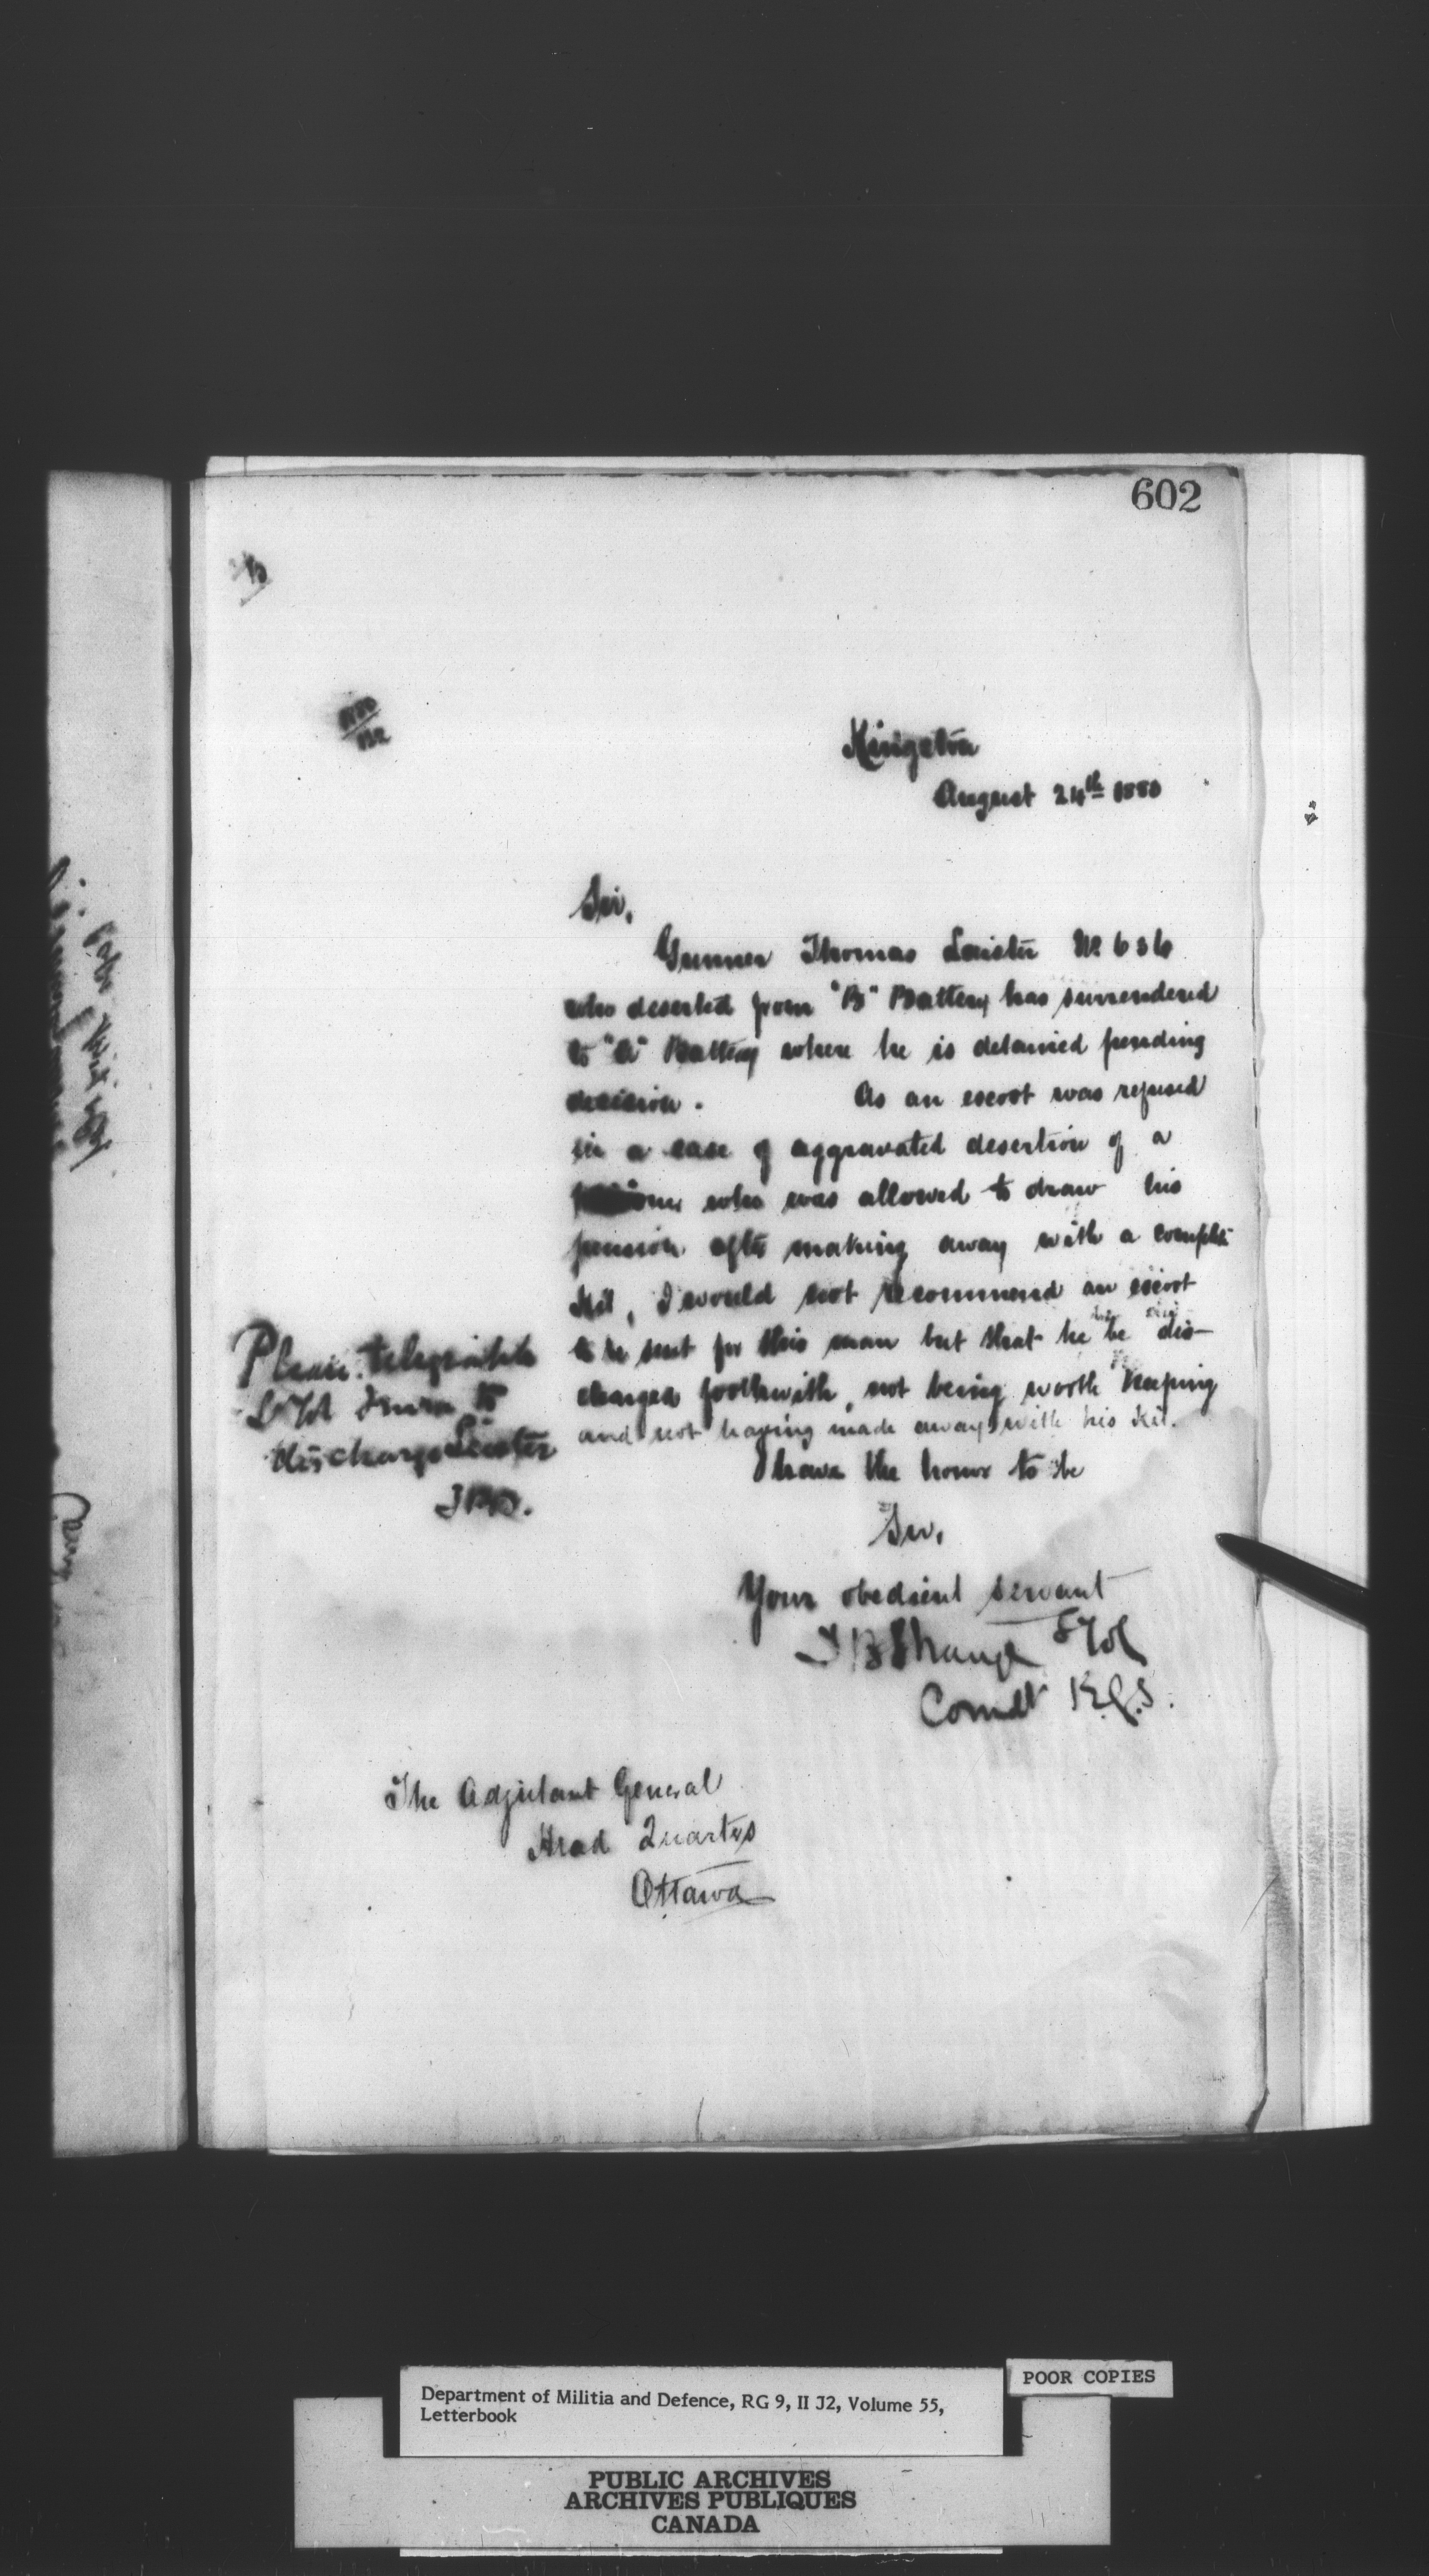 602
Kingston
August 24th 1880
Sir,
Gunner Thomas Leister No 636
who deserted from "B" Battery has surrendered
to "A" Battery where he is detained pending
decision. As an escort was refused
in a case of aggravated desertion of a
who was allowed to draw his
pension after making away with a complete
Kit, I would not recommend an escort
to be sent for this man but that he be dis-
charged forthwith, not being worth Keeping
and not having made away with his Kit.
I have the honor to be
Sir,
Your obedient servant
T B Strange Lt Col
Comdt R.G.S.
Please telegraph
Lt Col Irwin to
discharge Leister
The Adjutant General
Head Quarters
Ottawa
Department of Militia and Defence, RG 9, II J2, Volume 55,
Letterbook
POOR COPIES
PUBLIC ARCHIVES
ARCHIVES PUBLIQUES
CANADA